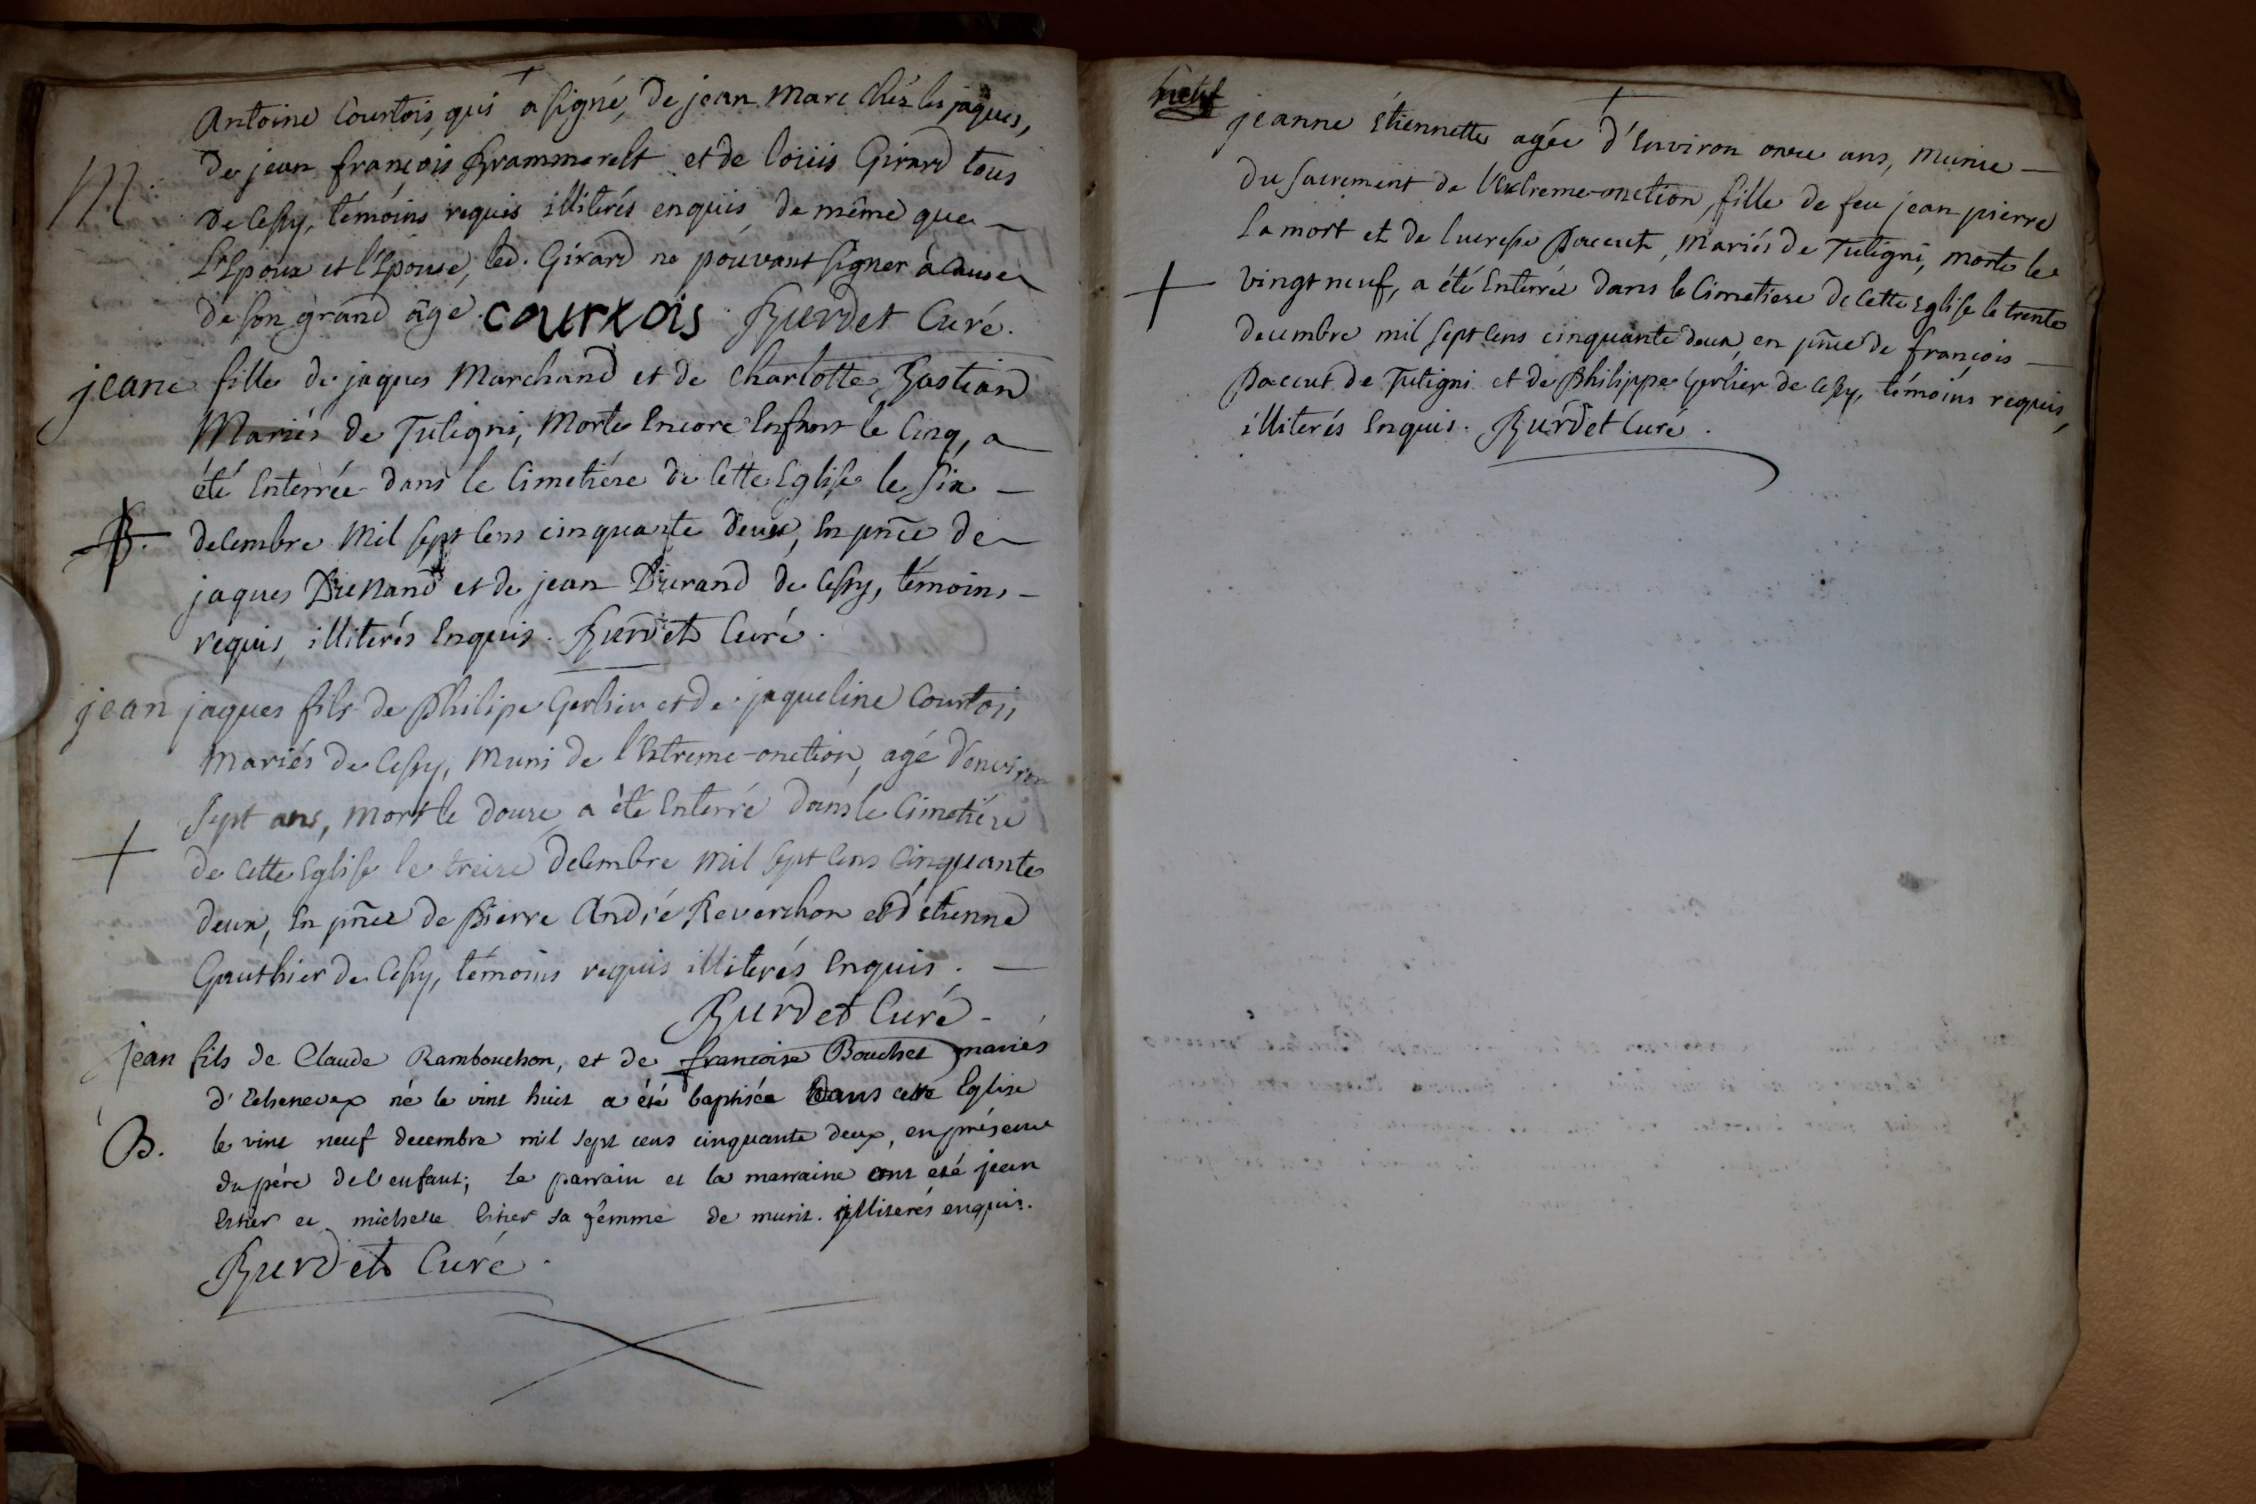 Antoine Courtois, qui a signé, de jean Marc chéz les jaques,
M. de jean françois Grammarelt et de loüis Girard tous
de Cessy, témoins requis illiterés enquis, de même que
l'Epoux et l'Epouse, led. Girard ne pouvant signer à cause
de son grand âge. courtois Burdet Curé.
jeane fille de jaques Marchand et de Charlotte Bastian
Mariés de Tutigni, Morte Encore Enfant le Cinq, a
été Enterrée dans le Cimetiére de Cette Eglise le Six
decembre Mil Sept Cens cinquante deux, En pñce de
jaques Durand et de jean Durand de Cessy, témoins
requis, illiterés Enquis. Burdet Curé.
jean jaques fils de Philipe Gerlier et de jaqueline Courtois
Mariés de Cessy, Muni de l'Extreme-onction, agé d'environ
Sept ans, mort le douze, a été Enterré dans le Cimetiére
de Cette Eglise le treize decembre Mil Sept Cens Cinquante
deux, En pñce de Pierre André Reverchon et d'étienne
Gauthier de Cessy, témoins requis illiterés Enquis.
Burdet Curé
jean fils de Claude Rambouchon, et de françoise Bouchet mariés
d'Echenevex né le vint huit a été baptisée Dans cette Eglise
B. le vint neuf decembre mil sept cens cinquante deux, en présence
du pére de l'enfant; le parrain et la marraine ont eté jean
Estier et michelle Estier sa fémme de murit. illiterés enquis.
Burdet Curé.
jeanne Etiennette agée d'Environ onze ans, munie
du Sacrement de l'Extreme-onction, fille de feu jean pierre
Lamort et de lucresse Daccut, Mariés de Tutigni, morte le
vingt neuf, a été Enterrée dans le Cimetiere de Cette Eglise le trente
decembre mil Sept Cens cinquante deux, en pñce de françois
Daccut de Tutigni et de Philippe Gerlier de Cessy, témoins requis,
illiterés Enquis. Burdet Curé.